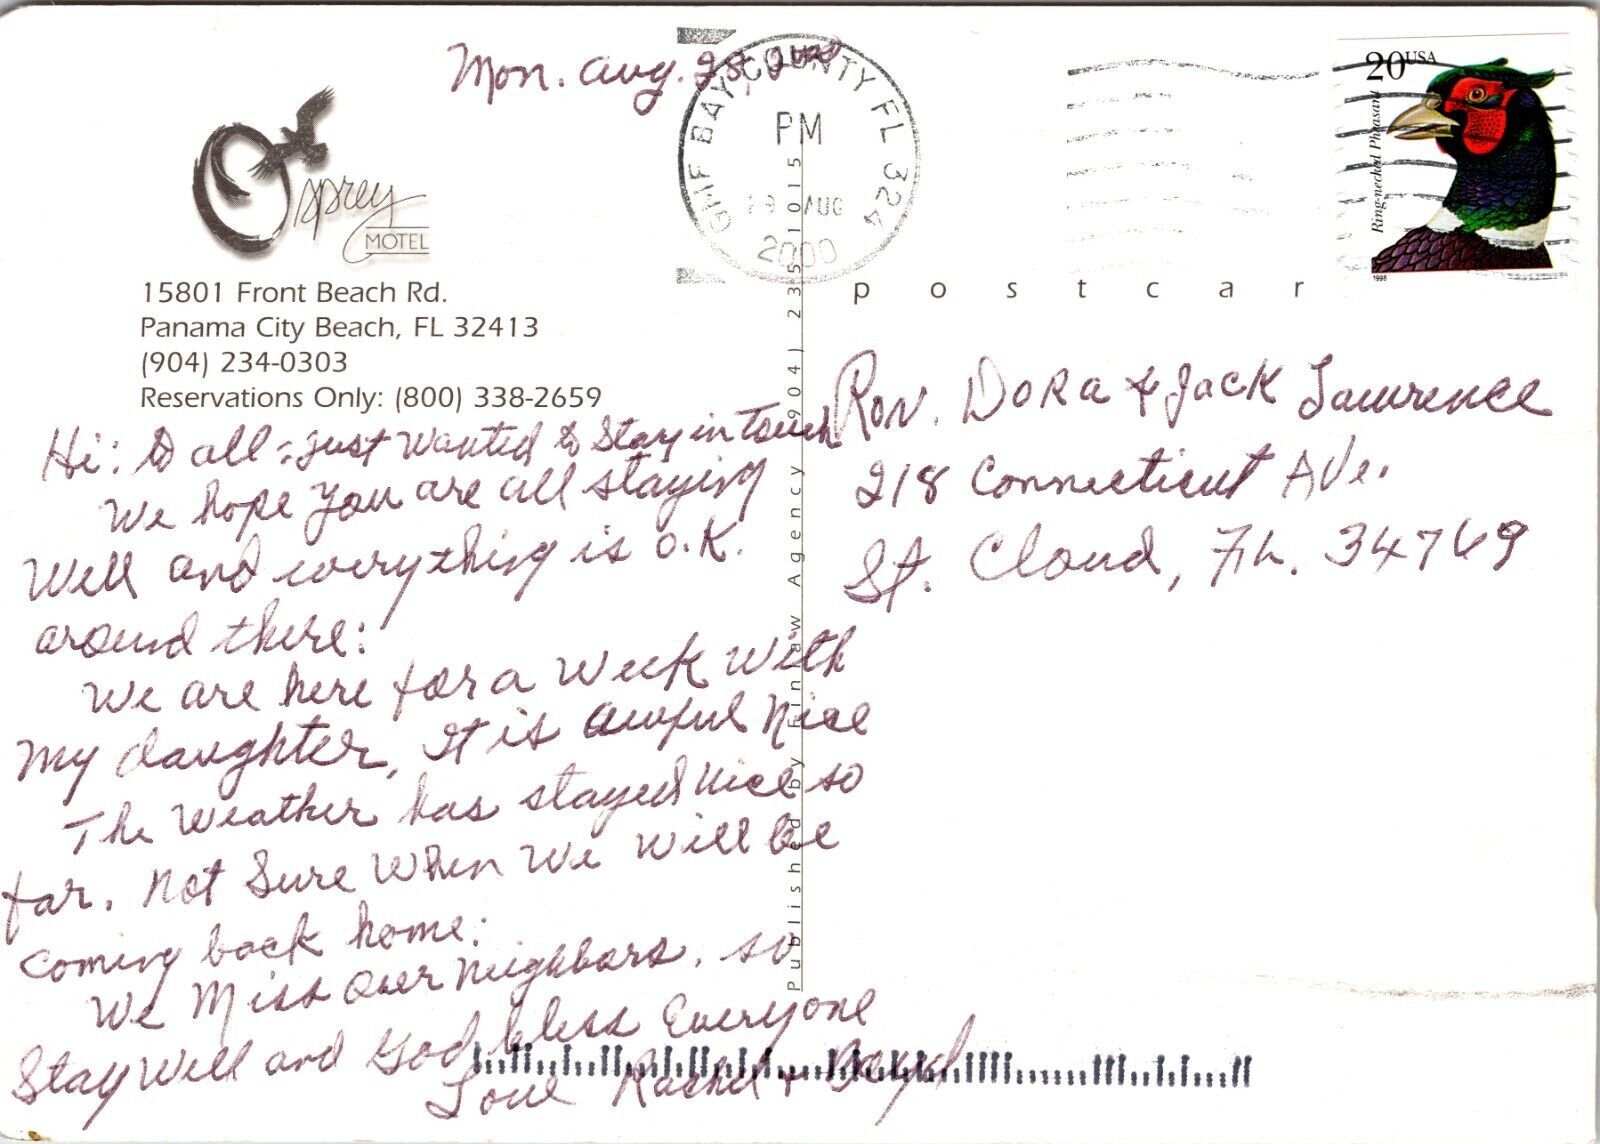 Mon. Aug. 28, 2000
GMF BAY COUNTY FL 324
PM
AUG
2000
20 USA
Ring-necked Pheasant
1998
Osprey
MOTEL
15801 Front Beach Rd.
Panama City Beach, FL 32413
(904) 234-0303
Reservations Only: (800) 338-2659
postcar
Published by Finlaw Agency (904) 235-1015
Hi: to all: just wanted to Stay in Touch.
We hope you are all staying
Well and everything is O.K.
around there:
We are here for a Week With
My daughter, It is awful Nice
The Weather has stayed nice so
far. Not Sure When We will be
coming back home:
We Miss over neighbors. so
Stay Well and God bless Everyone
Love Rachel +
Ron. Dora & Jack Lawrence
218 Connecticut Ave.
St. Cloud, Fla. 34769